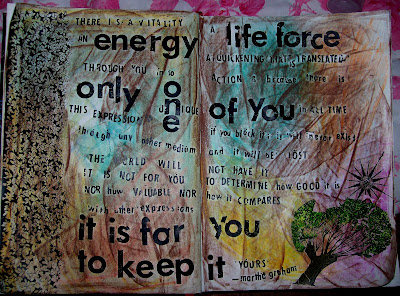 THERE IS A VITALITY
AN energy A life force
A QUICKENING THAT IS TRANSLATED
THROUGH YOU into ACTION & because there is
only one of you in ALL TIME
THIS EXPRESSION IS UNIQUE
if you block it it will never exist
through any other medium and it will be LOST
THE WORLD WILL NOT HAVE IT
IT IS NOT FOR YOU TO DETERMINE how GOOD it is
NOR how VALUABLE NOR how it COMPARES
with other expressions
it is for you
to keep it "YOURS"
—martha graham